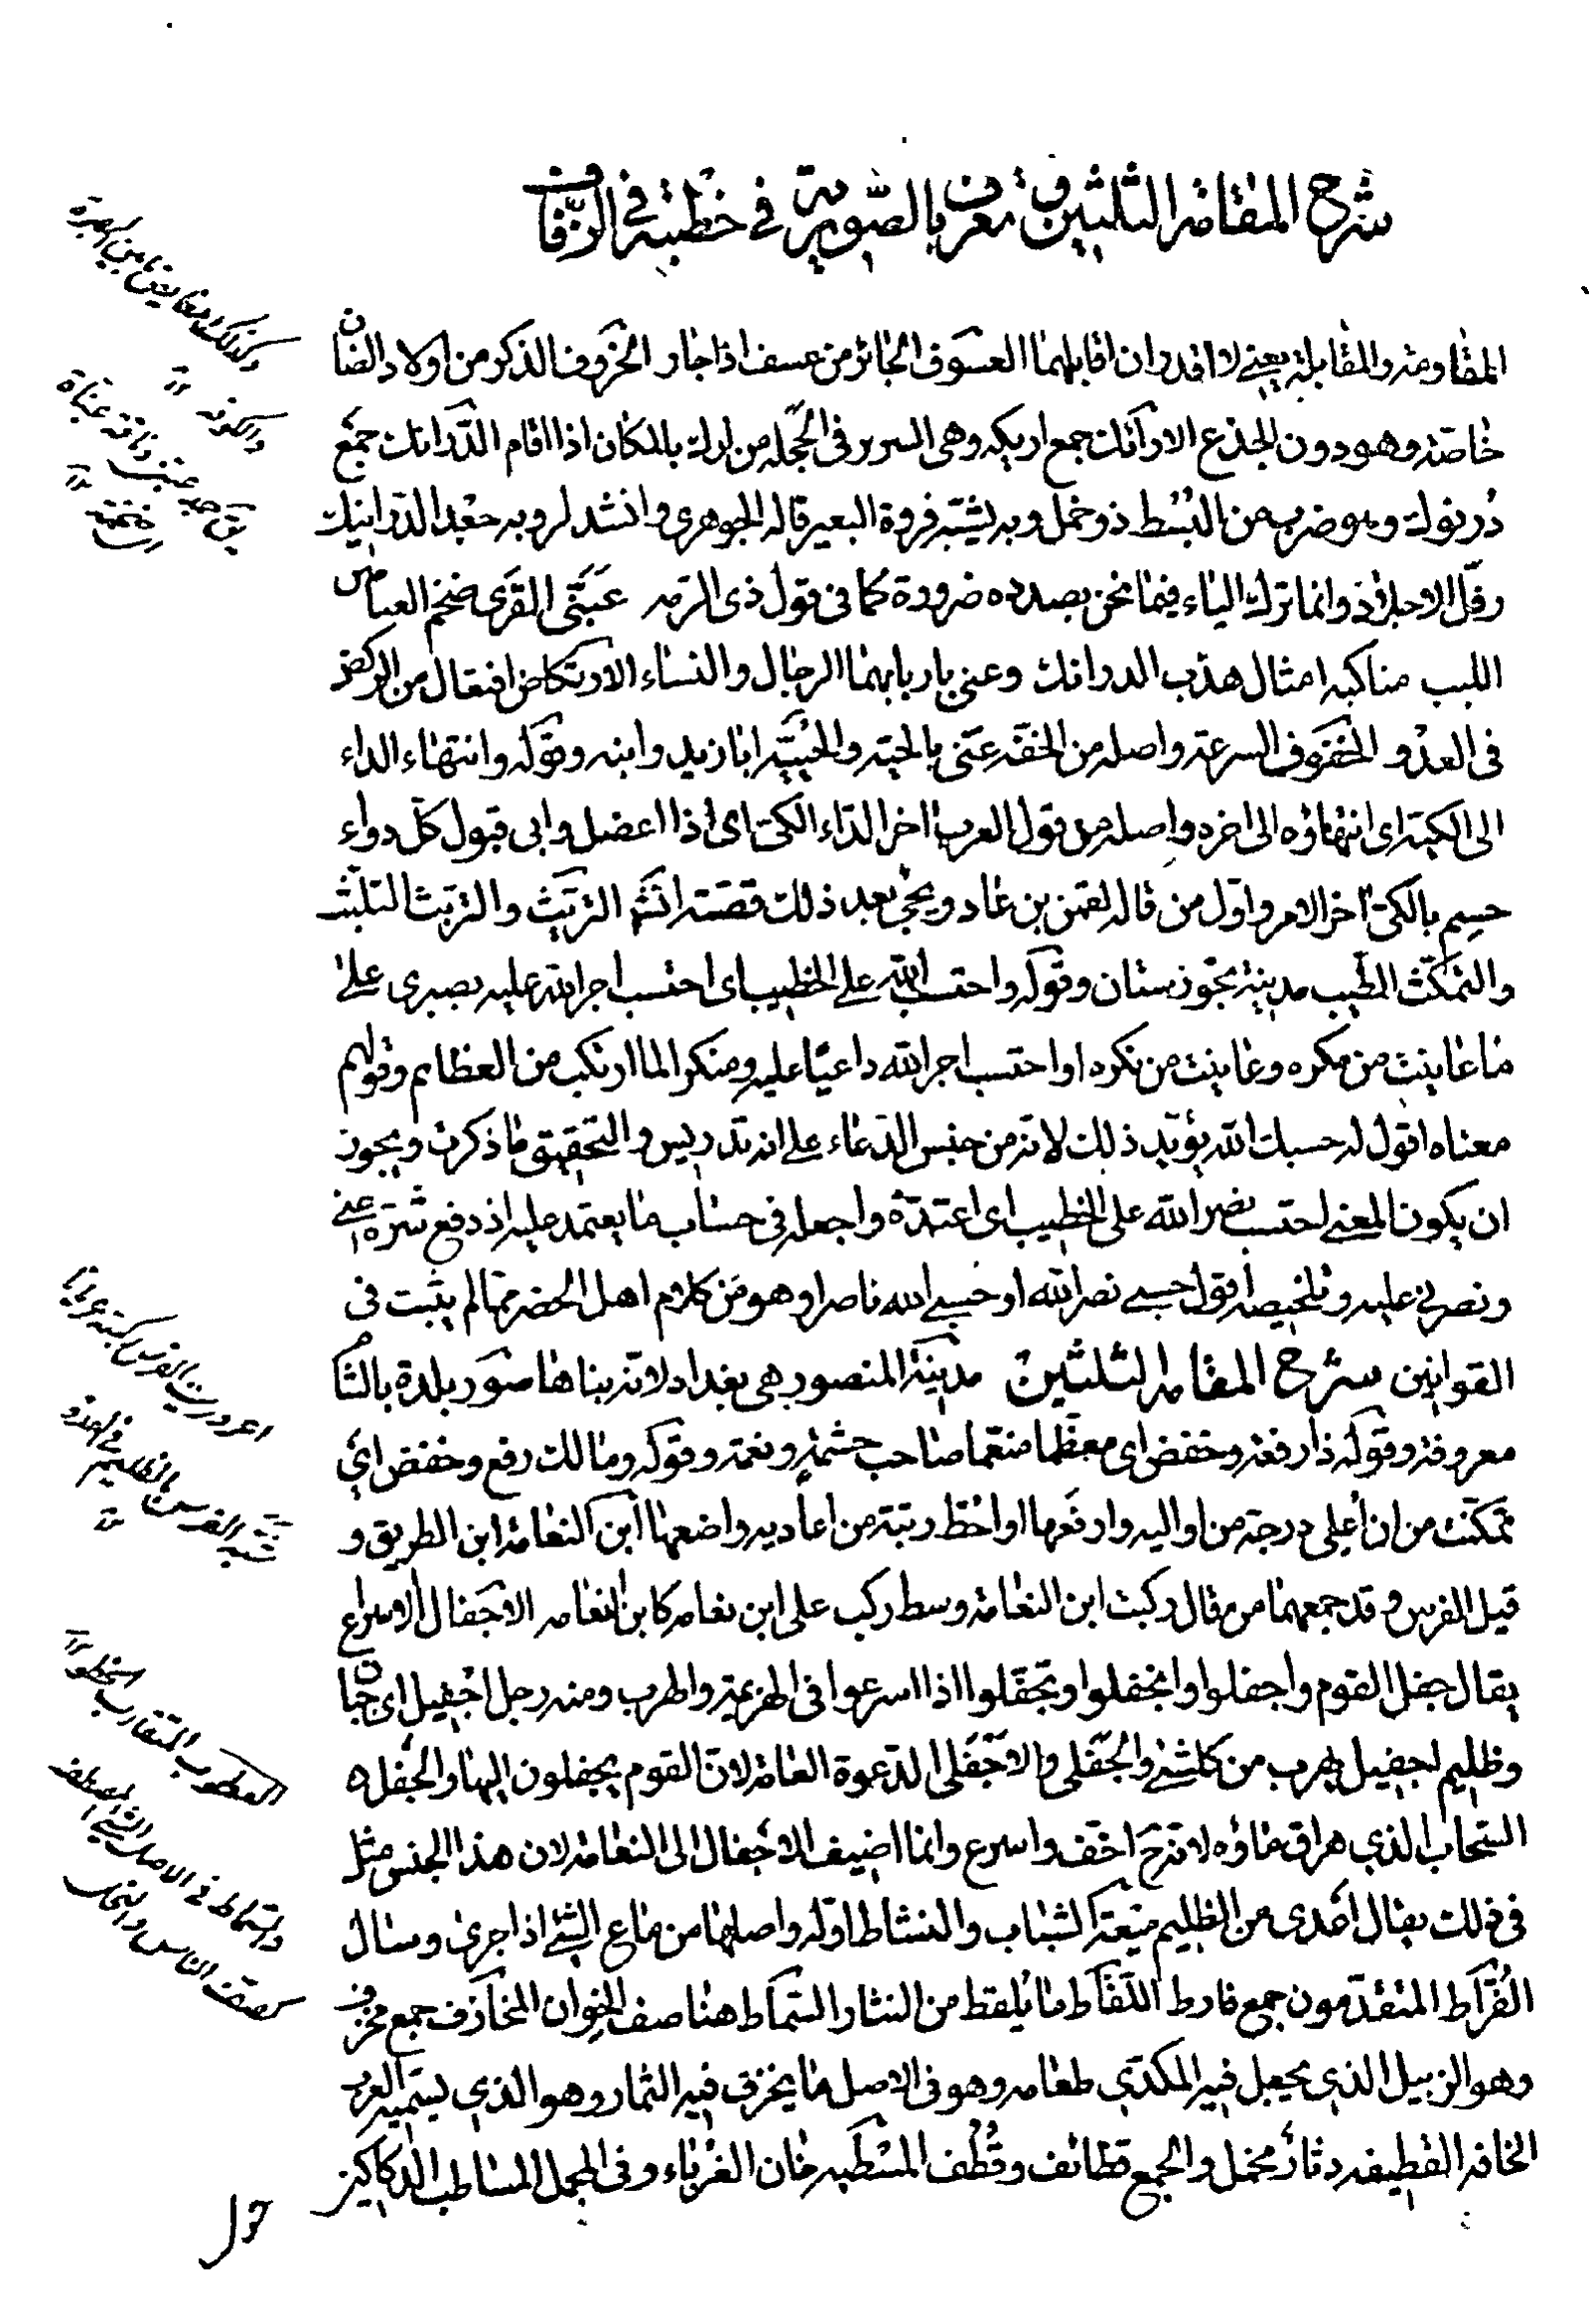 شرح المقامة الثلثين وتعرف بالصورية في خطبة في الزفاف
المقاومة والمقابلة يعني لا اقدر ان اقابلهما العسوف الجائر من عسف اذا جار الخروف الذكر من اولاد الضان
خاصة وهو دون الجذع الارائك جمع اريكه وهى السرير فى الحجله من ارك بالمكان اذا اقام الدرانك جمع
درنوك وهو ضرب من البسط ذو خمل وبه يشبه فروة البعير قاله الجوهرى وانشد لروبه جعد الدرانيك
رفل الاجلاد وانما ترك الياء فيما نحن بصدده ضرورة كما فى قول ذى الرمه عبنى القرى ضخم العثانين
اللبب مناكبه امثال هدب الدرانك وعنى باربابهما الرجال والنساء الارتكاض افتعال من الركض
فى العدو الخفوف السرعة واصله من الخفه عنى بالحية والحيية ابا زيد وابنه وقوله وانتهاء الداء
الى الكية اى انتهاؤه الى اخره واصله من قول العرب اخر الداء الكى اى اذا اعضل وابى قبول كل دواء
حسم بالكى اخر الامر واول من قاله لقمن بن عاد ويجئ بعد ذلك قصته انشم التريث والتربث التلبث
والتمكث الطيب مدينة بخوزستان وقوله واحتسب الله على الخطيب اى احتسب اجر الله عليه بصبرى على
ما عاينت من مكره وعاينت من نكره او احتسب اجر الله داعيا عليه ومنكرا لما ارتكب من العظايم وقولهم
معناه اقول له حسبك الله يؤيد ذلك لانه من جنس الدعاء على انه تدريس والتحقيق ما ذكرت ويجوز
ان يكون المعنى احتسب نصر الله على الخطيب اى اعتده واجعله فى حساب ما يعتمد عليه اذ دفع شره عنى
ونصرنى عليه وتلخيصه اقول حسبى نصر الله او حسبى الله ناصرا وهو من كلام اهل الحضر مما لم يثبت فى
القوانين شرح المقامة الثلثين مدينة المنصور هى بغداد لانه بناها صور بلدة بالشام
معروفة وقوله ذا رفعة وخفض اى معظما منعما صاحب حشمة ونعمة وقوله ومالك رفع وخفض اي
تمكنت من ان اعلى درجة من اواليه وارفعها او احط رتبة من اعاديه واضعها ابن النعامة ابن الطريق و
قيل الفرس وقد جمعهما من قال ركبت ابن النعامة وسط ركب على ابن نعامه كابن النعامه الاجفال الاسراع
يقال جفل القوم واجفلوا وانجفلوا وتجفلوا اذا اسرعوا فى الهزيمة والهرب ومنه رجل اجفيل اى جبان
وظليم اجفيل يهرب من كل شئ والجفلى والاجفلى الدعوة العامة لان القوم يجفلون اليها والجفل
السحاب الذي هراق ماؤه لانه ح اخف واسرع وانما اضيف الاجفال الى النعامة لان هذا الجنس مثل
فى ذلك يقال اعدى من الظليم ميعة الشباب والنشاط اوله واصلها من ماع الشئ اذا جرى وسال
الفراط المتقدمون جمع فارط اللقاط ما يلقط من النثار السماط هنا صف الخوان المخارف جمع مخرف
وهو الزبيل الذي يجعل فيه المكدي طعامه وهو فى الاصل ما يخرف فيه الثمار وهو الذي يسميه العرب
الخافة القطيفه دثار مخمل والجمع قطائف وقطف المسطبه خان الغرباء وفى المجمل المساطب الدكاكين
حول